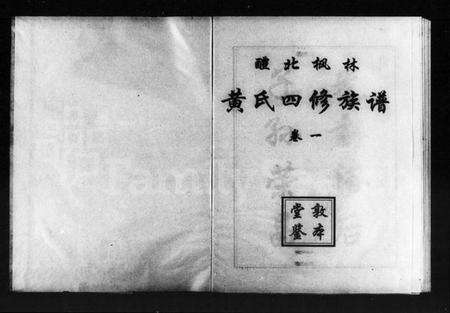 醴北枫林
黄氏四修族谱
卷一
敦本
堂鉴